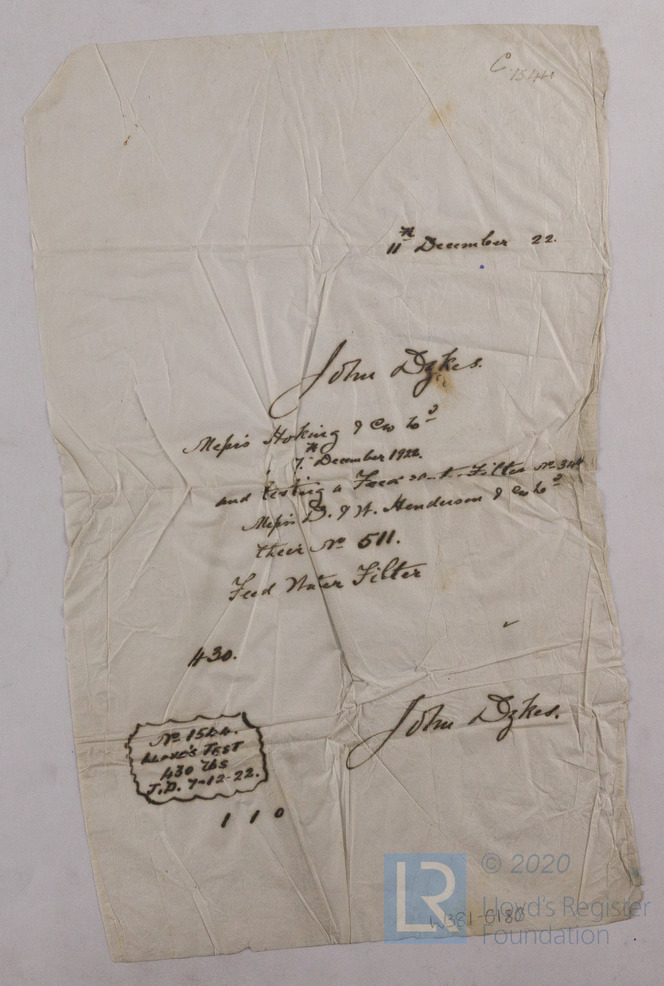 C 1544
11th December 22.
John Dykes.
Messrs Hoking & Co Ld
7th December 1922.
and testing a Feed Filter No
Messrs D. & W. Henderson & Co Ld
their No 511.
Feed Water Filter
430.
John Dykes.
No 1544.
LLOYD'S TEST
430 lbs
J.D. 7-12-22.
1 1 0
LR
© 2020
Lloyd's Register
Foundation
W381-0180